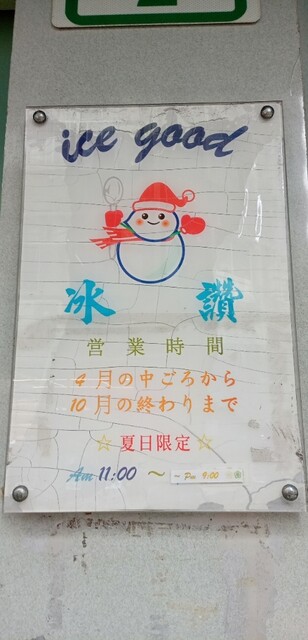 ice good
冰 讚
営業時間
4月の中ごろから
10月の終わりまで
☆ 夏日限定 ☆
Am 11:00 ～ Pm 9:00